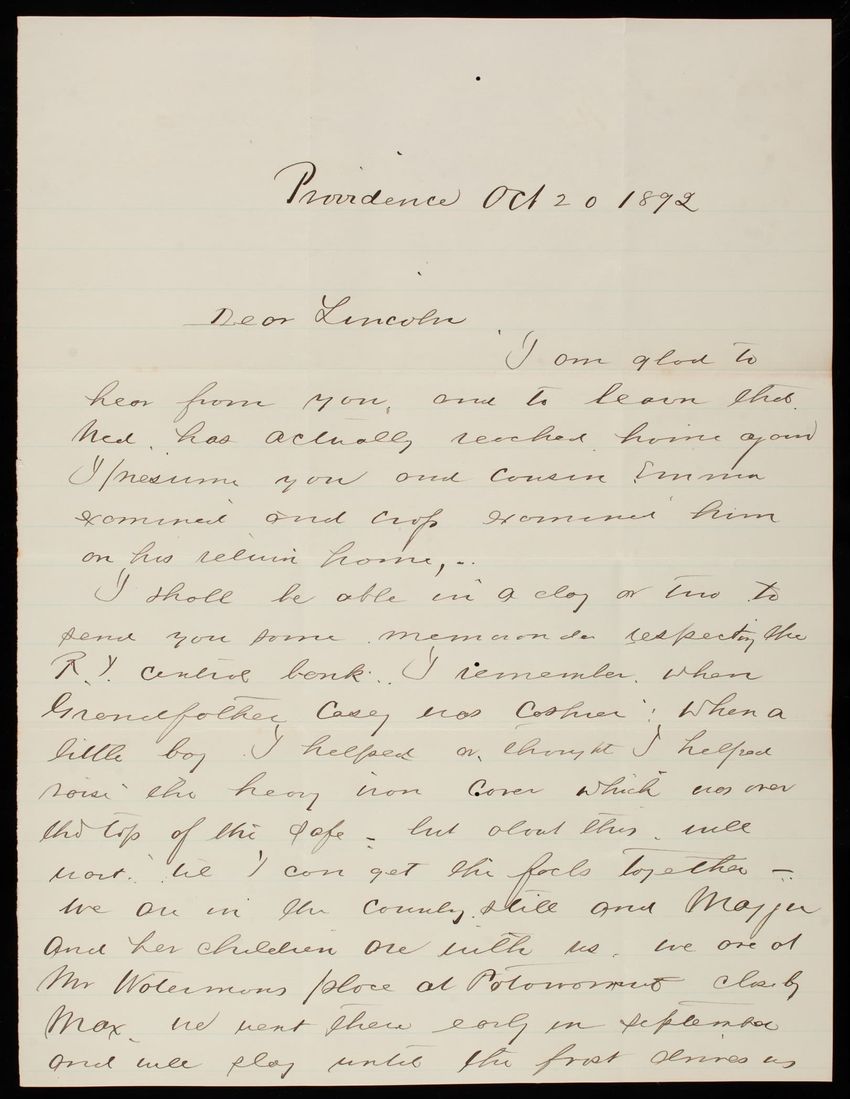 Providence Oct 20 1892
Dear Lincoln
I am glad to
hear from you, and to learn that
Ned has actually reached home again
I presume you and cousin Emma
examined and cross examined him
on his return home,
I shall be able in a day or two to
send you some memoranda respecting the
R.I. central bank. I remember when
Grandfather Casey was Cashier: When a
little boy I helped or thought I helped
raise the heavy iron Cover which was over
the top of the Safe - but about this will
wait till I can get the facts together -
We are in the Country still and
and her children are with us. we are at
Mr Watermans place at Potowomut close by
Max we went there early in September
and will stay until the frost drives us